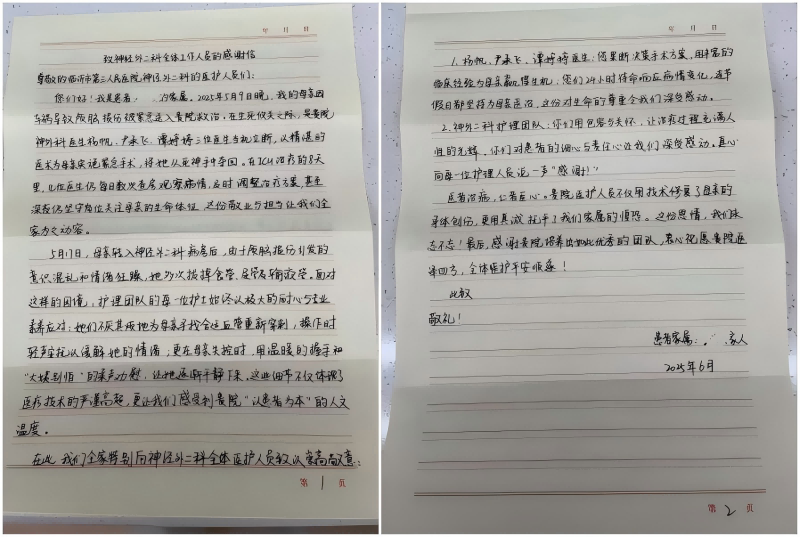 年 月 日
致神经外二科全体工作人员的感谢信
尊敬的临沂市第三人民医院神经外二科的医护人员们：
您们好！我是患者 的家属。2025年5月9日晚，我的母亲因
车祸导致颅脑损伤被紧急送入贵院救治，在生死攸关之际，是贵院
神外科医生杨帆、尹承飞、谭婷婷三位医生当机立断，以精湛的
医术为母亲实施紧急手术，将她从死神手中夺回。在ICU治疗的8天
里，几位医生仍每日数次查房观察病情，及时调整治疗方案，甚至
深夜仍坚守岗位关注母亲的生命体征，这份敬业与担当让我们全
家为之动容。
5月17日，母亲转入神经外二科病房后，由于颅脑损伤引发的
意识混乱和情绪狂躁，她多次拔掉食管、尿管及输液管。面对
这样的困境，护理团队的每一位护士始终以极大的耐心与专业
素养应对：她们不厌其烦地为母亲寻找合适血管重新穿刺，操作时
轻声安抚以缓解她的情绪，更在母亲失控时，用温暖的握手和
“大姨别怕”的柔声劝慰，让她逐渐平静下来。这些细节不仅体现了
医疗技术的严谨高超，更让我们感受到贵院“以患者为本”的人文
温度。
在此，我们全家特别向神经外二科全体医护人员致以崇高敬意：
第 1 页
年 月 日
1. 杨帆、尹承飞、谭婷婷医生：您果断决策手术方案，用丰富的
临床经验为母亲赢得生机；您们24小时待命响应病情变化，连节
假日都坚持为母亲医治，这份对生命的尊重令我们深受感动。
2. 神外二科护理团队：你们用包容与关怀，让治疗过程充满人
性的光辉，你们对患者的细心与责任心让我们深受感动。真心
向每一位护理人员说一声“感谢”！
医者治病，仁者医心。贵院医护人员不仅用技术修复了母亲的
身体创伤，更用真诚抚平了我们家属的惶恐。这份恩情，我们永
志不忘！最后，感谢贵院培养出如此优秀的团队，衷心祝愿贵院医
泽四方，全体医护平安顺遂！
此致
敬礼！
患者家属： 家人
2025年6月
第 2 页